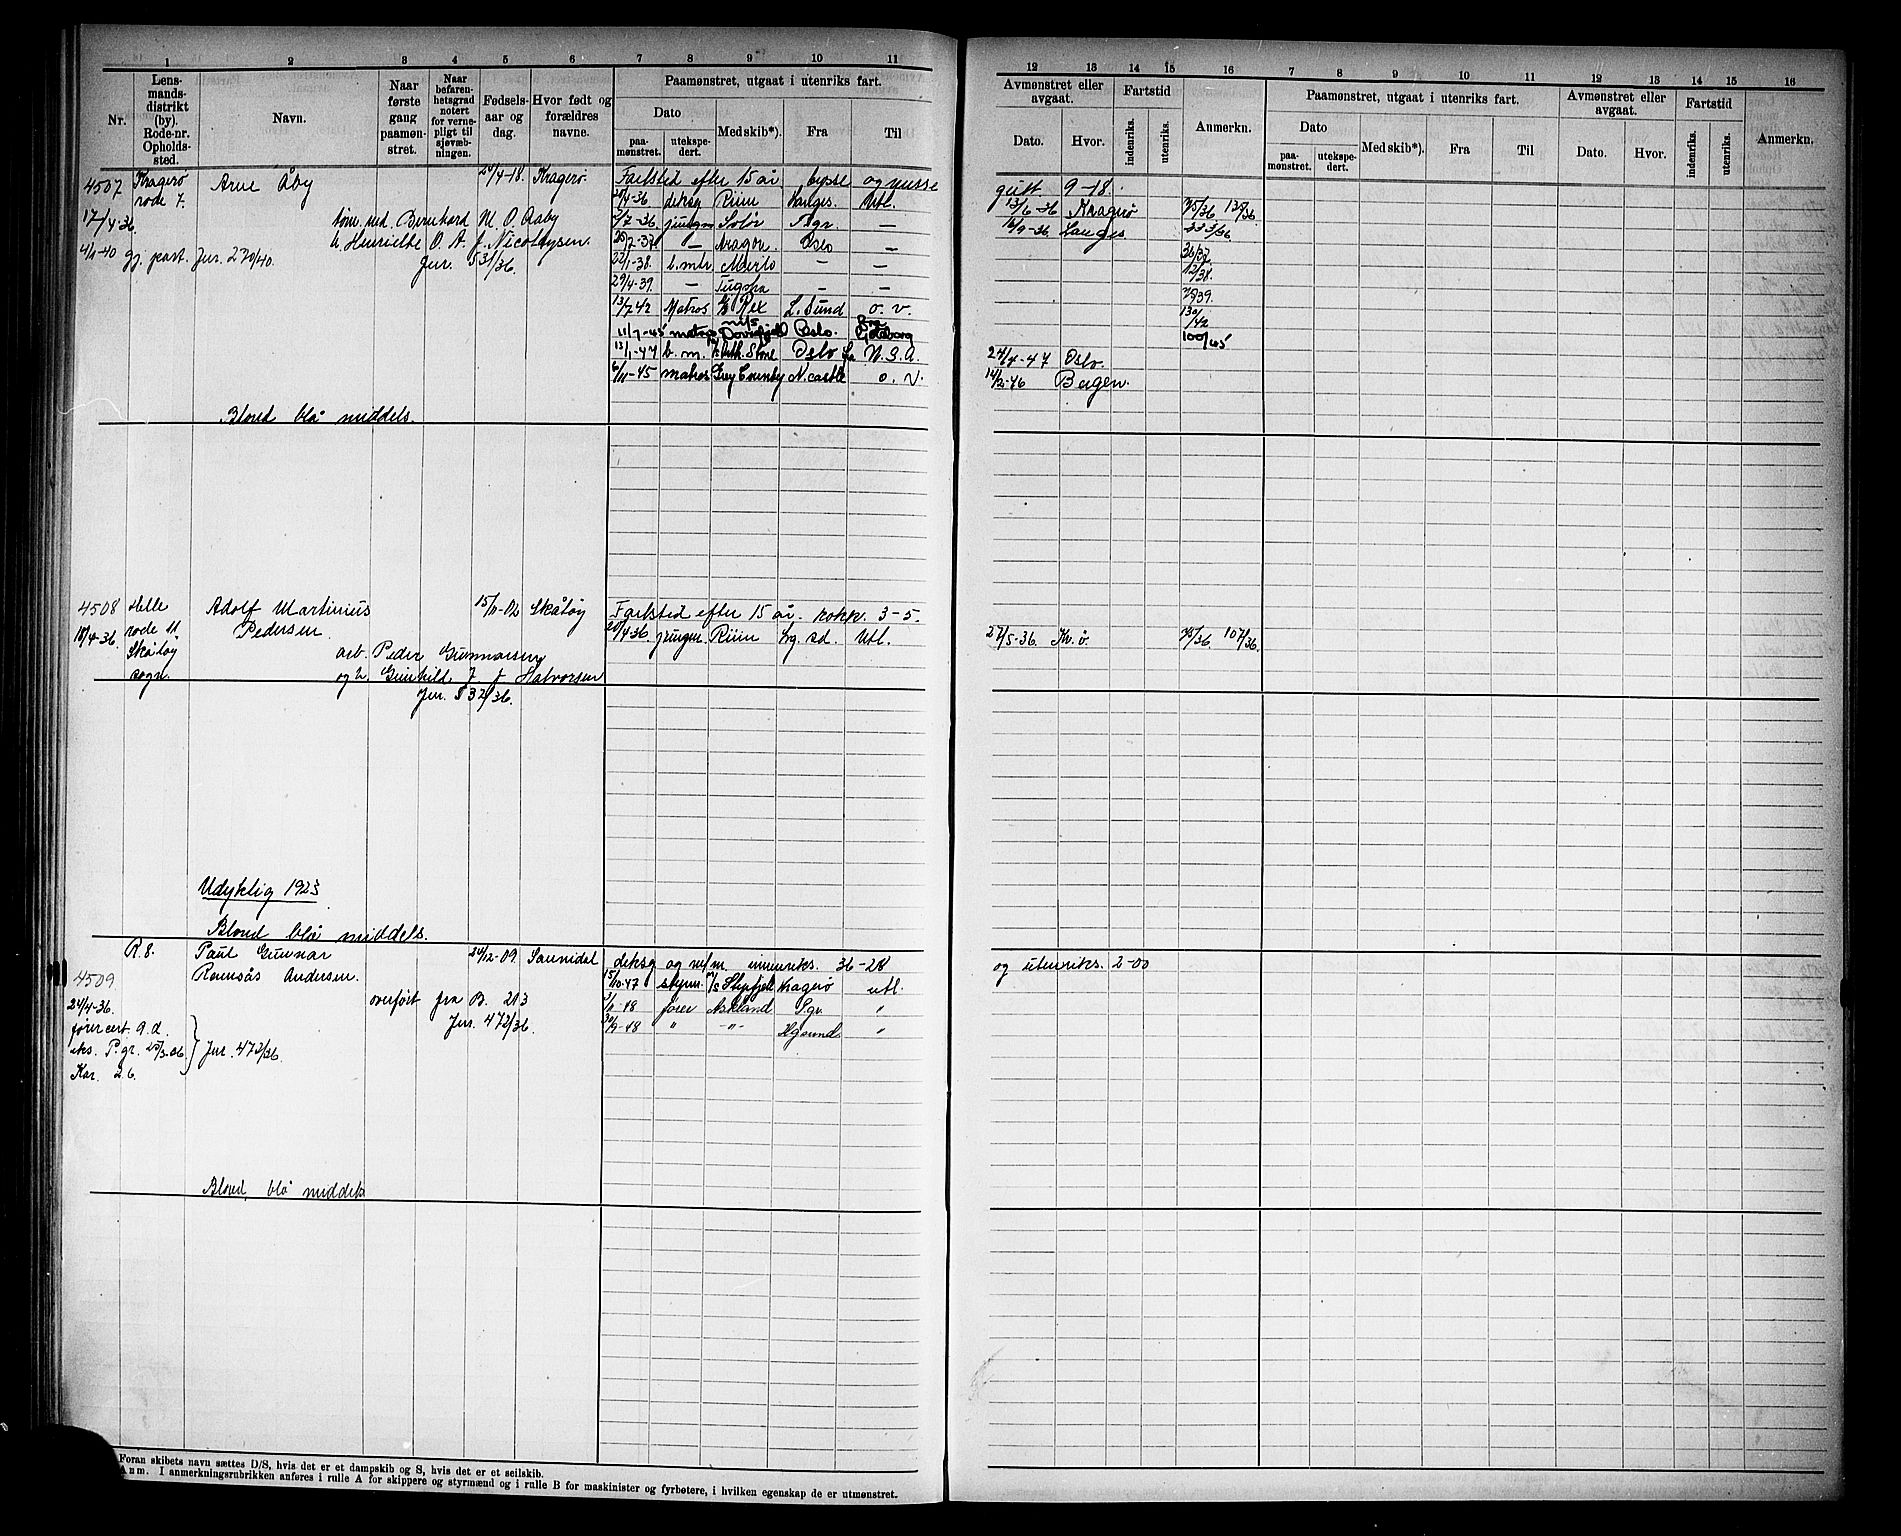 1 2 3 4 5 6 7 8 9 10 11
Nr.
Lensmandsdistrikt (by). Rode-nr. Opholdssted.
Navn.
Naar første gang paamønstret.
Naar befarenhetsgrad notert for vernepligt til sjøvæbningen.
Fødselsaar og dag.
Hvor født og forældres navne.
Paamønstret, utgaat i utenriks fart.
Dato
paamønstret. utekspedert.
Med skib*). Fra Til
12 13 14 15 16 7 8 9 10 11 12 13 14 15 16
Avmønstret eller avgaat. Fartstid
Dato. Hvor. indenriks. utenriks. Anmerkn.
Paamønstret, utgaat i utenriks fart.
Dato
paamønstret. utekspedert.
Med skib*). Fra Til
Avmønstret eller avgaat. Fartstid
Dato. Hvor. indenriks. utenriks. Anmerkn.
4507 Kragerø rode 7. Arne Åby 4-18. Kragerø
Fartstid efter 15 år bysse og messe gutt 9-18.
4-36 deksg Riim Langes. Utl. 13/6-36 Kragerø
17/4 36. sønn. ved. Bernhard M. O. Aaby
h. O. A. f. Nicolaysen.
2/7-36 jungm Solør Pgr. — Langes
4/1-40 gj. part. Jur. 270/40.
Jur. 531/36.
7-37 — Aragon. Oslo —
22/1-38. b. mtr — —
29/4-39. — — —
13/7 42 Matros Rex L. sund o. v.
11/7-45 matros Dovrefjell Oslo. Göteborg
100/45
13/1-47 b. m. Oslo U. S. A. 24/4-47 Oslo.
6/11-45 matros Grey County N. castle o. v. 14/2-46 Bergen.
Blond blå middels.
4508 Helle rode 11 Skåtøy sogn.
18/4-36.
Adolf Martinius Pedersen 15/11-02 Skåtøy
arb. Peder Gunnarsen
og h. Gunhild J. f. Halvorsen
Jur. 532/36.
Fartstid efter 15 år. kokk. 3-5.
20/4-36. jungm. Riim Lg. sd. Utl. 27/5-36 Kr. ø. 107/36.
Udyktig 1923
Blond blå middels.
R. 8. Paul Gunnar 24/12-09. Sannidal
4509 Ramsås Andersen.
24/4-36.
overført fra B. 213
Jur. 472/36.
førercert. Jur. 472/36.
eks. P.gr.
Kar. 2.6.
deksg og mtr. innenriks. 36-28 og utenriks. 2-00
15/10-47 styrm. M/s Kragerø utl.
11-48 fører Asklund P.gr. "
9-48 " -"- Hgsund "
Blond, blå middels
Foran skibets navn sættes D/S, hvis det er et dampskib og S, hvis det er et seilskib.
Anm. I anmerkningsrubrikken anføres i rulle A for skippere og styrmænd og i rulle B for maskinister og fyrbøtere, i hvilken egenskap de er utmønstret.